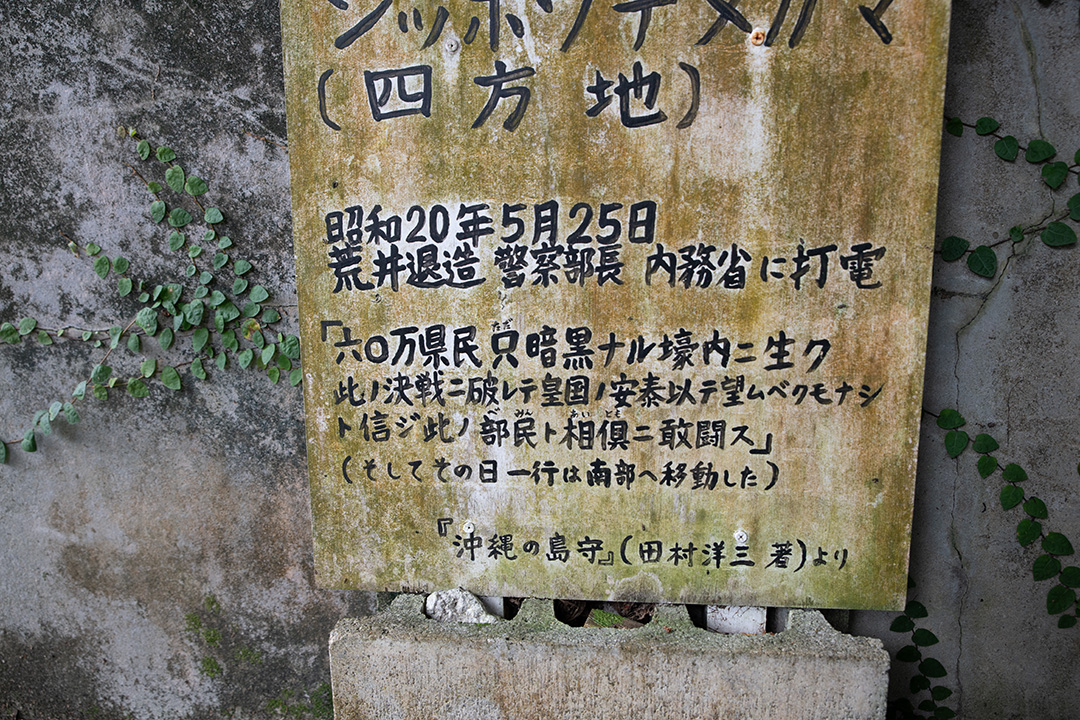 シッポウヂヌガマ
(四方地)
昭和20年5月25日
荒井退造 警察部長 内務省に打電
「六〇万県民只暗黒ナル壕内ニ生ク
ただ
此ノ決戦ニ破レテ皇国ノ安泰以テ望ムベクモナシ
べみん あいとも
ト信ジ此ノ部民ト相倶ニ敢闘ス」
(そしてその日一行は南部へ移動した)
『沖縄の島守』(田村洋三 著)より